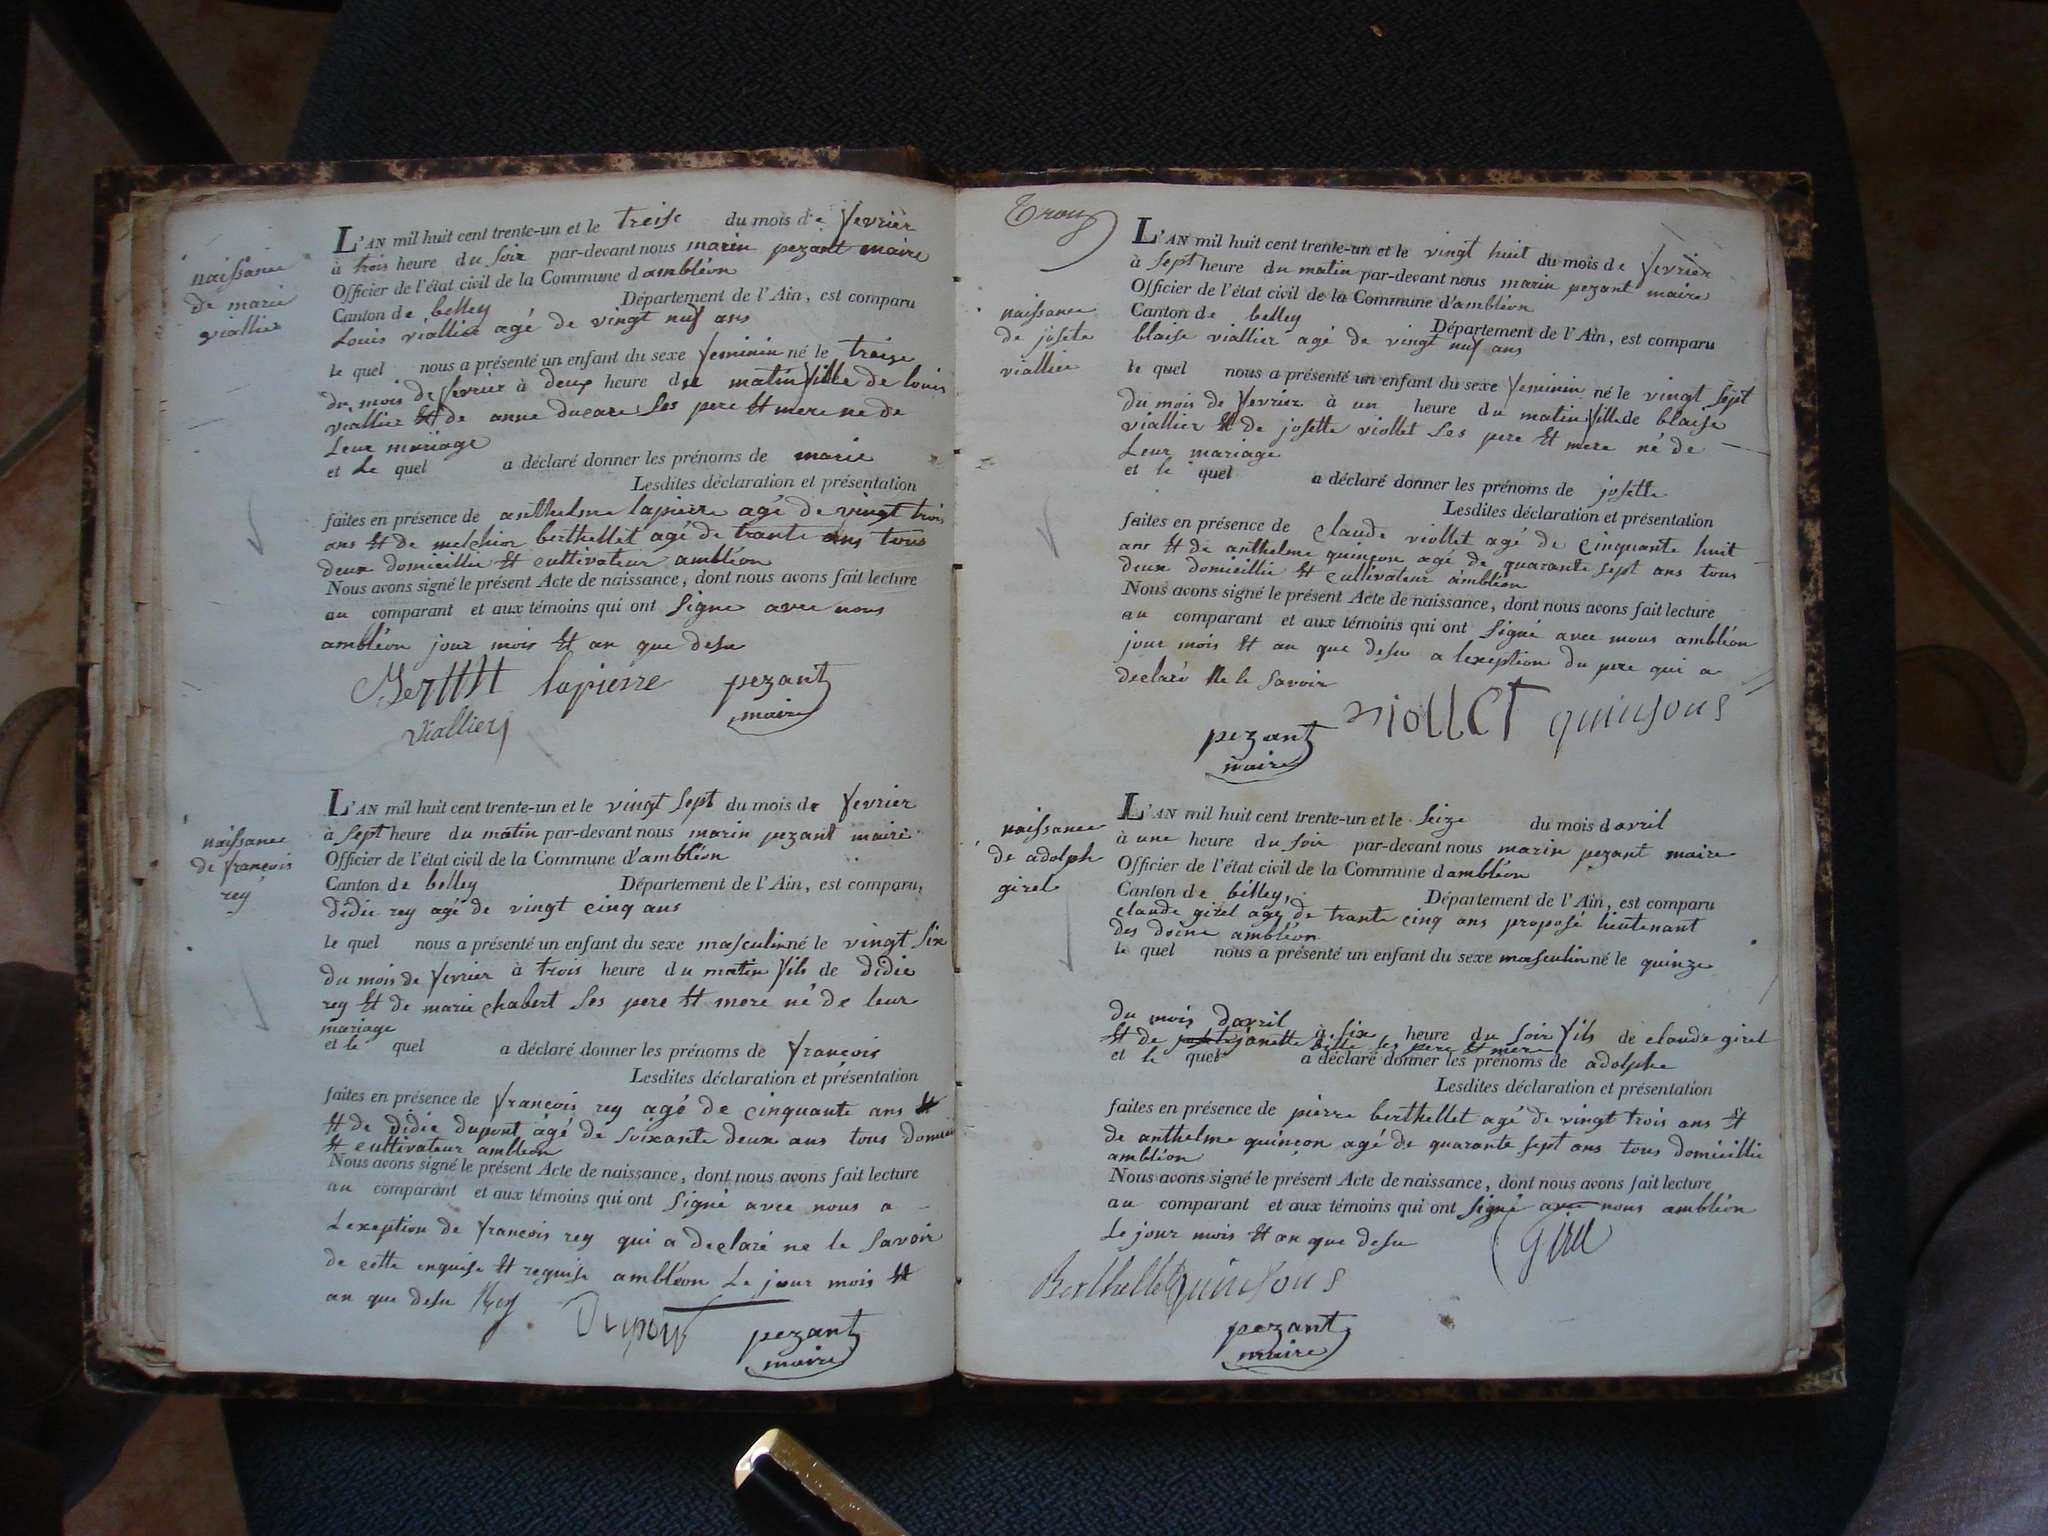 naissance
de marie
viallier
L'AN mil huit cent trente-un et le treise du mois de fevrier
à trois heure du soir par-devant nous marin pezant maire
Officier de l'état civil de la Commune d'ambléon
Canton de belley Département de l'Ain, est comparu
Louis viallier agé de vingt nuf ans
le quel nous a présenté un enfant du sexe feminin né le treize
du mois de fevrier à deux heure du matin fille de louis
viallier et de anne ducare ses pere et mere né de
Leur mariage
et Le quel a déclaré donner les prénoms de marie
Lesdites déclaration et présentation
faites en présence de anthelme lapierre agé de vingt trois
ans et de melchior berthellet agé de trante ans tous
deux domicillie et cultivateur ambléon
Nous avons signé le présent Acte de naissance, dont nous avons fait lecture
au comparant et aux témoins qui ont signe avec nous
ambléon jour mois et an que desu
lapierre pezant
maire
viallier
naissance
de françois
rey
L'AN mil huit cent trente-un et le vingt sept du mois de fevrier
à sept heure du matin par-devant nous marin pezant maire
Officier de l'état civil de la Commune d'ambléon
Canton de belley Département de l'Ain, est comparu,
didie rey agé de vingt cinq ans
le quel nous a présenté un enfant du sexe masculin né le vingt six
du mois de fevrier à trois heure du matin fils de didie
rey et de marie chabert ses pere et mere né de leur
mariage
et le quel a déclaré donner les prénoms de françois
Lesdites déclaration et présentation
faites en présence de françois rey agé de cinquante ans et
et de didie dupont agé de soixante deux ans tous
et cultivateur ambléon
Nous avons signé le présent Acte de naissance, dont nous avons fait lecture
au comparant et aux témoins qui ont signé avec nous a
Lexeption de françois rey qui a declaré ne le savoir
de cette enquise et requise ambléon Le jour mois et
an que desu Rey Dupont pezant
maire
naissance
de josete
viallier
L'AN mil huit cent trente-un et le vingt huit du mois de fevrier
à sept heure du matin par-devant nous marin pezant maire
Officier de l'état civil de la Commune d'ambléon
Canton de belley Département de l'Ain, est comparu
blaise viallier agé de vingt nuf ans
le quel nous a présenté un enfant du sexe feminin né le vingt sept
du mois de fevrier à un heure du matin fille de blaise
viallier et de josette viollet ses pere et mere né de
Leur mariage
et le quel a déclaré donner les prénoms de josette
Lesdites déclaration et présentation
faites en présence de claude viollet agé de cinquante huit
ans et de anthelme quinçon agé de quarante sept ans tous
deux domicillie et cultivateur ambléon
Nous avons signé le présent Acte de naissance, dont nous avons fait lecture
au comparant et aux témoins qui ont signé avec nous ambléon
jour mois et an que desu a lexeption du pere qui a
declaré ne le savoir
pezant viollet quinsous
maire
naissance
de adolphe
girel
L'AN mil huit cent trente-un et le seize du mois d avril
à une heure du soir par-devant nous marin pezant maire
Officier de l'état civil de la Commune d ambléon
Canton de belley, Département de l'Ain, est comparu
claude girel agé de trante cinq ans proposé lieutenant
des doine ambléon
le quel nous a présenté un enfant du sexe masculin né le quinze
du mois davril à six heure du soir fils de claude girel
et de janette ses pere et mere
et le quel a déclaré donner les prénoms de adolphe
Lesdites déclaration et présentation
faites en présence de pierre berthellet agé de vingt trois ans et
de anthelme quinçon agé de quarante sept ans tous domicillie
ambléon
Nous avons signé le présent Acte de naissance, dont nous avons fait lecture
au comparant et aux témoins qui ont signé avec nous ambléon
Le jour mois et an que desu Girel
Berthellet quinsous
pezant
maire